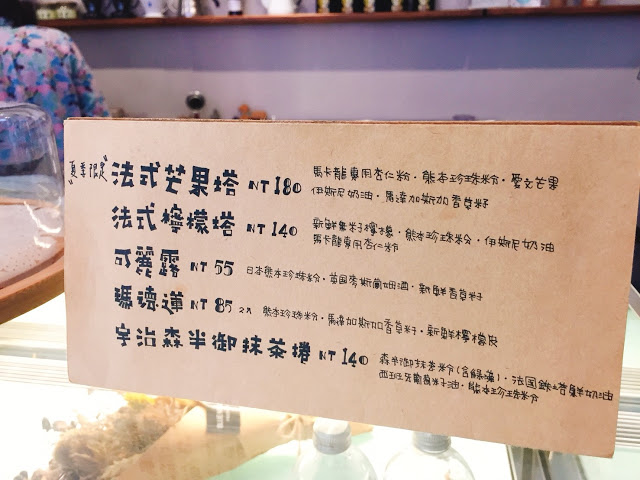 "夏季限定"法式芒果塔 NT 180 馬卡龍專用杏仁粉・熊本珍珠粉・愛文芒果
伊斯尼奶油・馬達加斯加香草籽
法式檸檬塔 NT 140 新鮮無籽檸檬・熊本珍珠粉・伊斯尼奶油
馬卡龍專用杏仁粉
可麗露 NT 55 日本熊本珍珠粉・英國麥斯蘭姆酒・新鮮香草籽
瑪德蓮 NT 85 2入 熊本珍珠粉・馬達加斯加香草籽・新鮮檸檬皮
宇治森半御抹茶捲 NT 140 森半御抹茶粉(含綠藻)・法国鐵塔鮮奶油
西班牙葡萄籽油・熊本珍珠粉